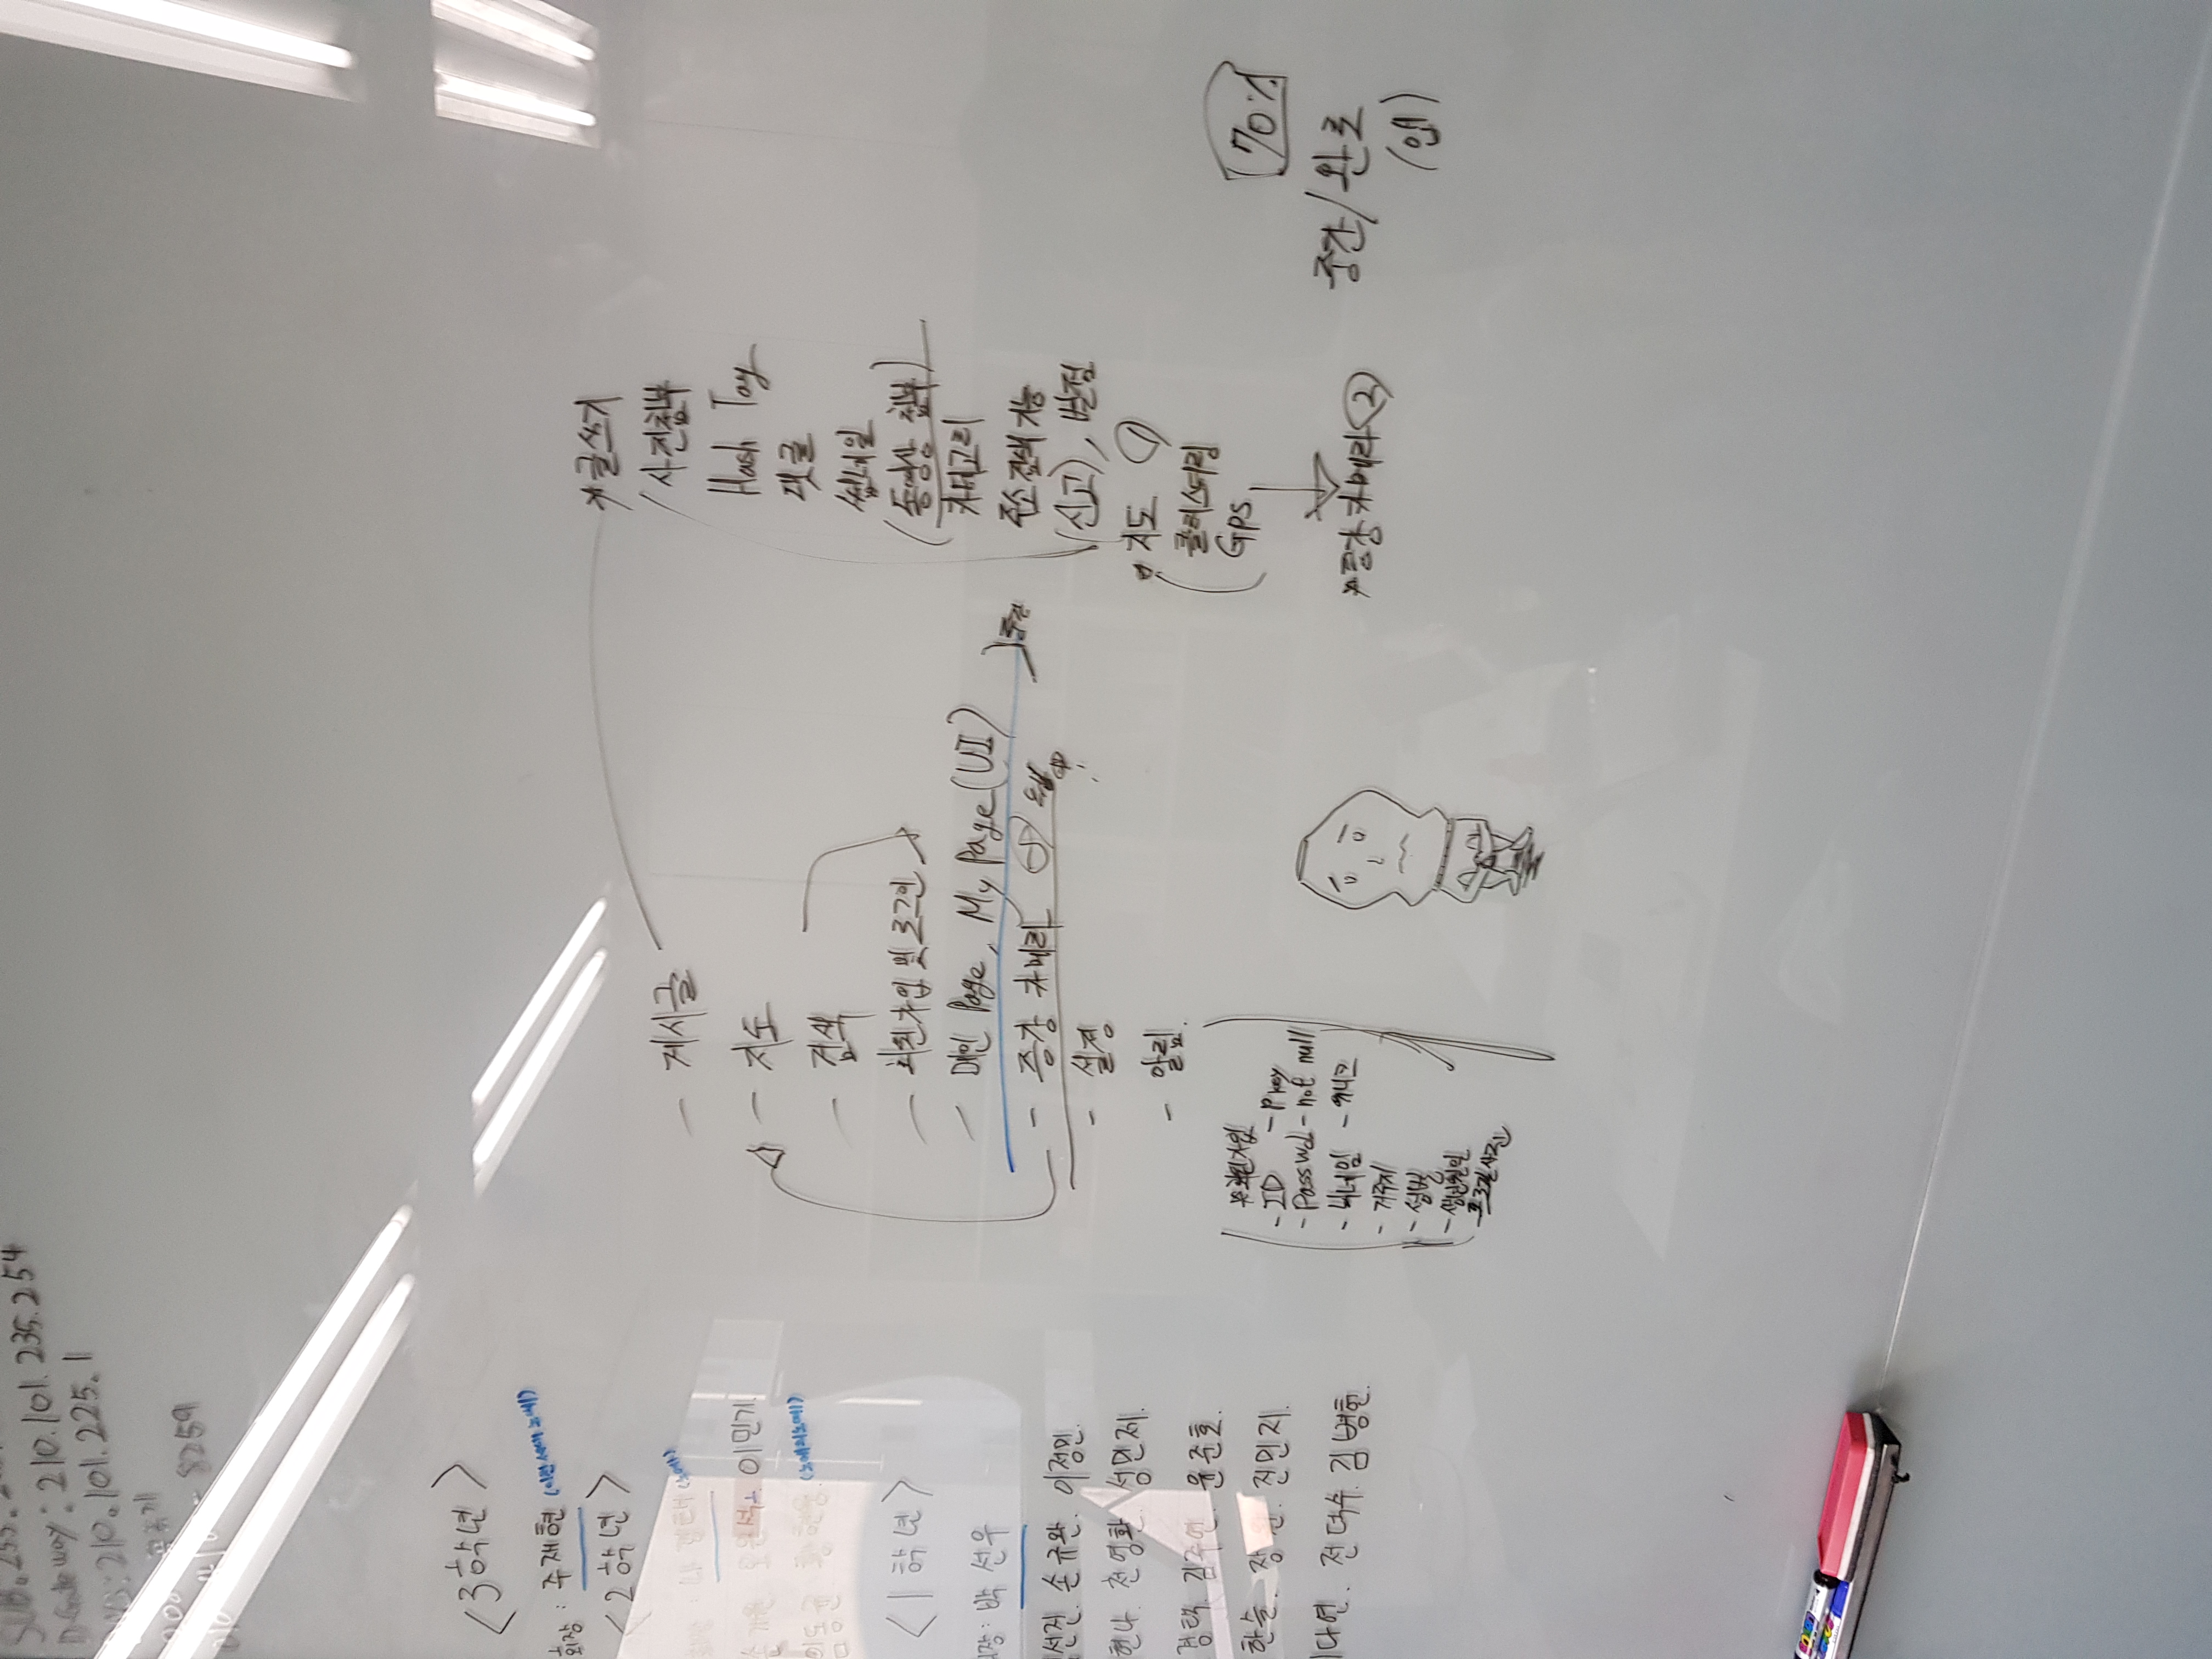 SUB.255.
Gateway: 210.101.235.254
210.101.225.1
8259
<3학년>
회장: 주재현
<2학년>
이민기.
(노예의노예)
<1학년>
박선우
손규완. 이정민.
현나. 천영환. 성민제.
경택. 김주연. 윤준호.
한슬. 장 진민지.
다연. 전덕수. 김병현.
- 게시글
- 지도
- 검색
- 회원가입 및 로그인
- 메인 Page, My Page (UI)
- 증강 카메라
- 설정
- 알림.
*회원가입
- ID - P key
- Passwd - not null
- 닉네임 - 유니크
- 거주지
- 성별
- 생년월일
- 프로필사진
*글쓰기
사진첨부
Hash Tag
댓글
썸네일
(동영상 첨부)
카테고리
주소검색 기능
(신고), 별점
지도 ①
클러스터링
Gps
*증강 카메라 ②
70%
중간/완료
(앱)